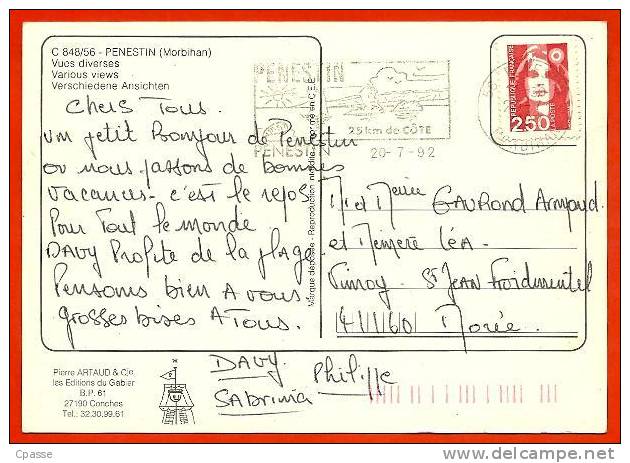 C 848/56 - PENESTIN (Morbihan)
Vues diverses
Various views
Verschiedene Ansichten
Chers Tous.
um petit Bonjour de Penestin
ou nous passons de bonnes
vacances. c'est le repos
Pour Tout le monde
DAVY Profite de la plage
Pensons bien A vous
grosses bises A Tous.
DAVY
Sabrina
Philippe
PENESTIN
25 km de CÔTE
PENESTIN
20-7-92
REPUBLIQUE FRANÇAISE
2,50
LA POSTE
Marque déposée - Reproduction interdite - Imprimé en C.E.E.
M et Meire GAUROND Armand
et Memere Léa
St JEAN Froidmentel
41160 Morée
Pierre ARTAUD & Cie
les Editions du Gabier
B.P. 61
27190 Conches
Tel.: 32.30.99.61
Cpasse
delcampe.net